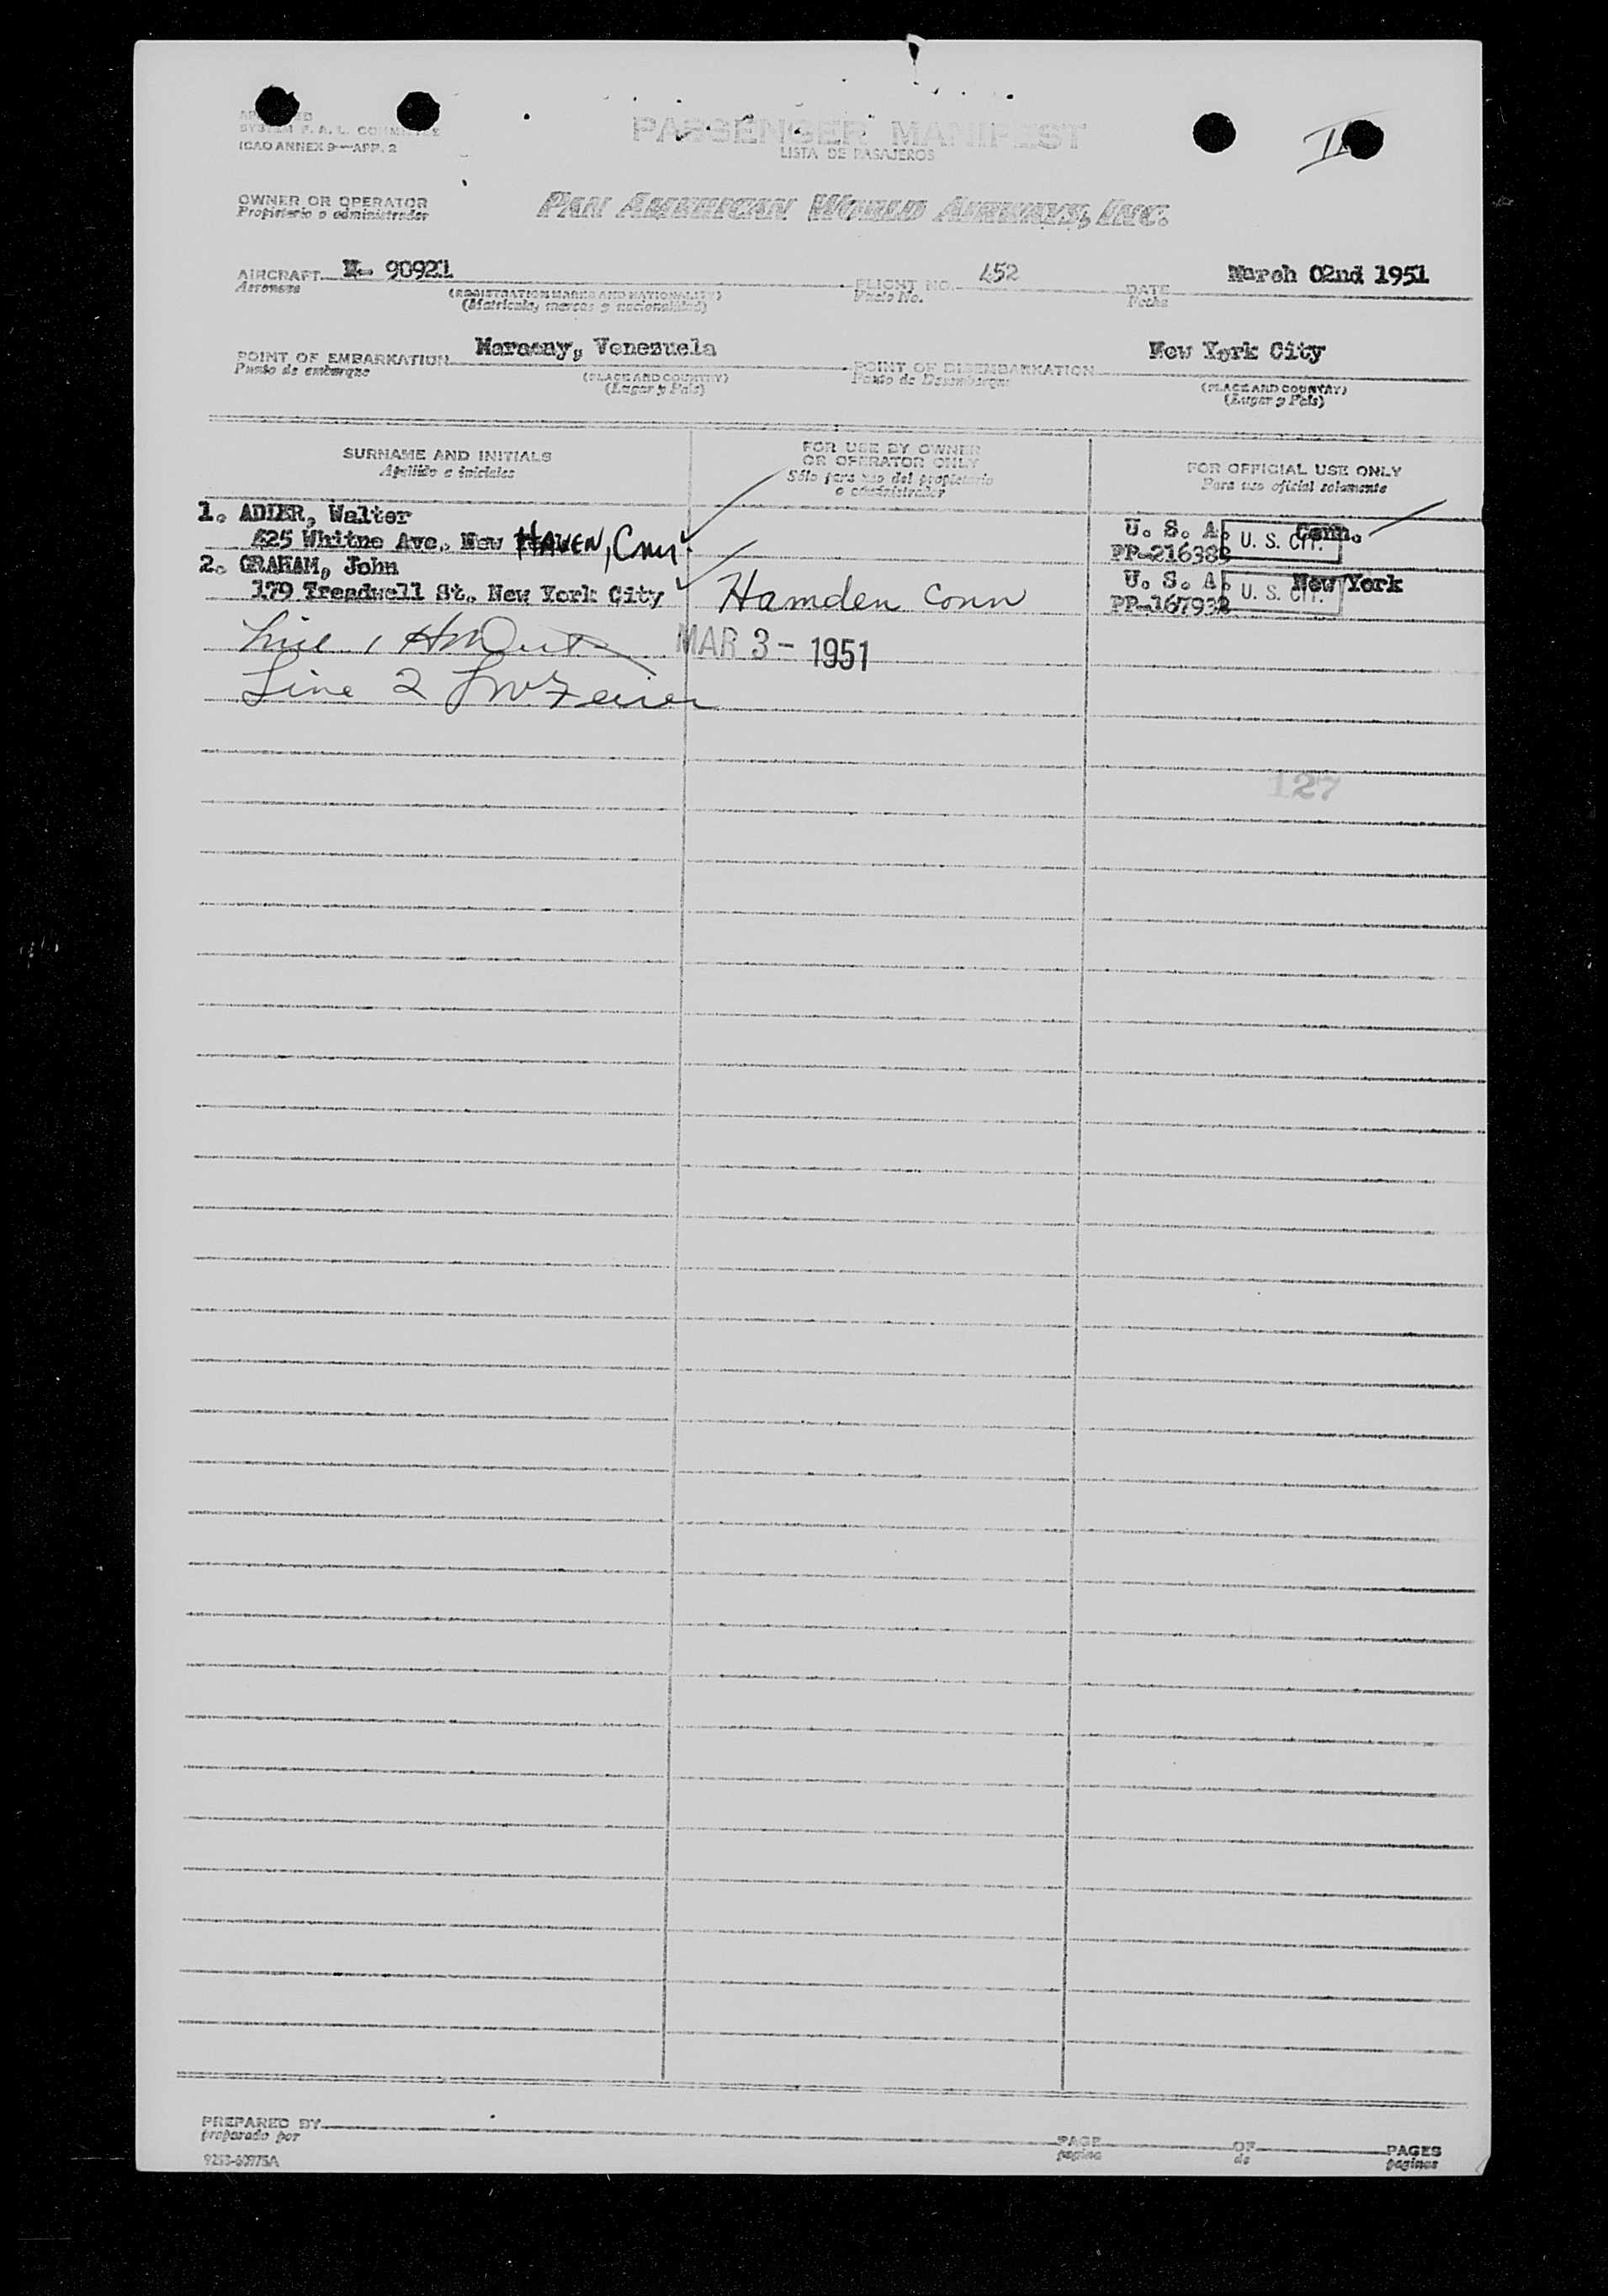 SYSTEM F. A. L. COMMITTEE
ICAO ANNEX 9—APP. 2
PASSENGER MANIFEST
LISTA DE PASAJEROS
II
OWNER OR OPERATOR
Propietario o administrador
PAN AMERICAN WORLD AIRWAYS, INC.
AIRCRAFT N- 90921 FLIGHT NO. 452 DATE March 02nd 1951
Aeronave (REGISTRATION MARKS AND NATIONALITY) Vuelo No. Fecha
(Matricula, marcas y nacionalidad)
POINT OF EMBARKATION Maracay, Venezuela POINT OF DISEMBARKATION New York City
Punto de embarque (PLACE AND COUNTRY) Punto de Desembarque (PLACE AND COUNTRY)
(Lugar y Pais) (Lugar y Pais)
SURNAME AND INITIALS
Apellido e iniciales
FOR USE BY OWNER
OR OPERATOR ONLY
Sólo para uso del propietario
o administrador
FOR OFFICIAL USE ONLY
Para uso oficial solamente
1. ADLER, Walter U. S. A. Conn.
425 Whitne Ave. New HAVEN, Conn. PP-216382 U. S. CIT.
2. GRAHAM, John U. S. A. New York
179 Treadwell St. New York City Hamden Conn PP-167932 U. S. CIT.
Line 1
MAR 3 - 1951
Line 2
127
PREPARED BY PAGE OF PAGES
preparado por pagina de paginas